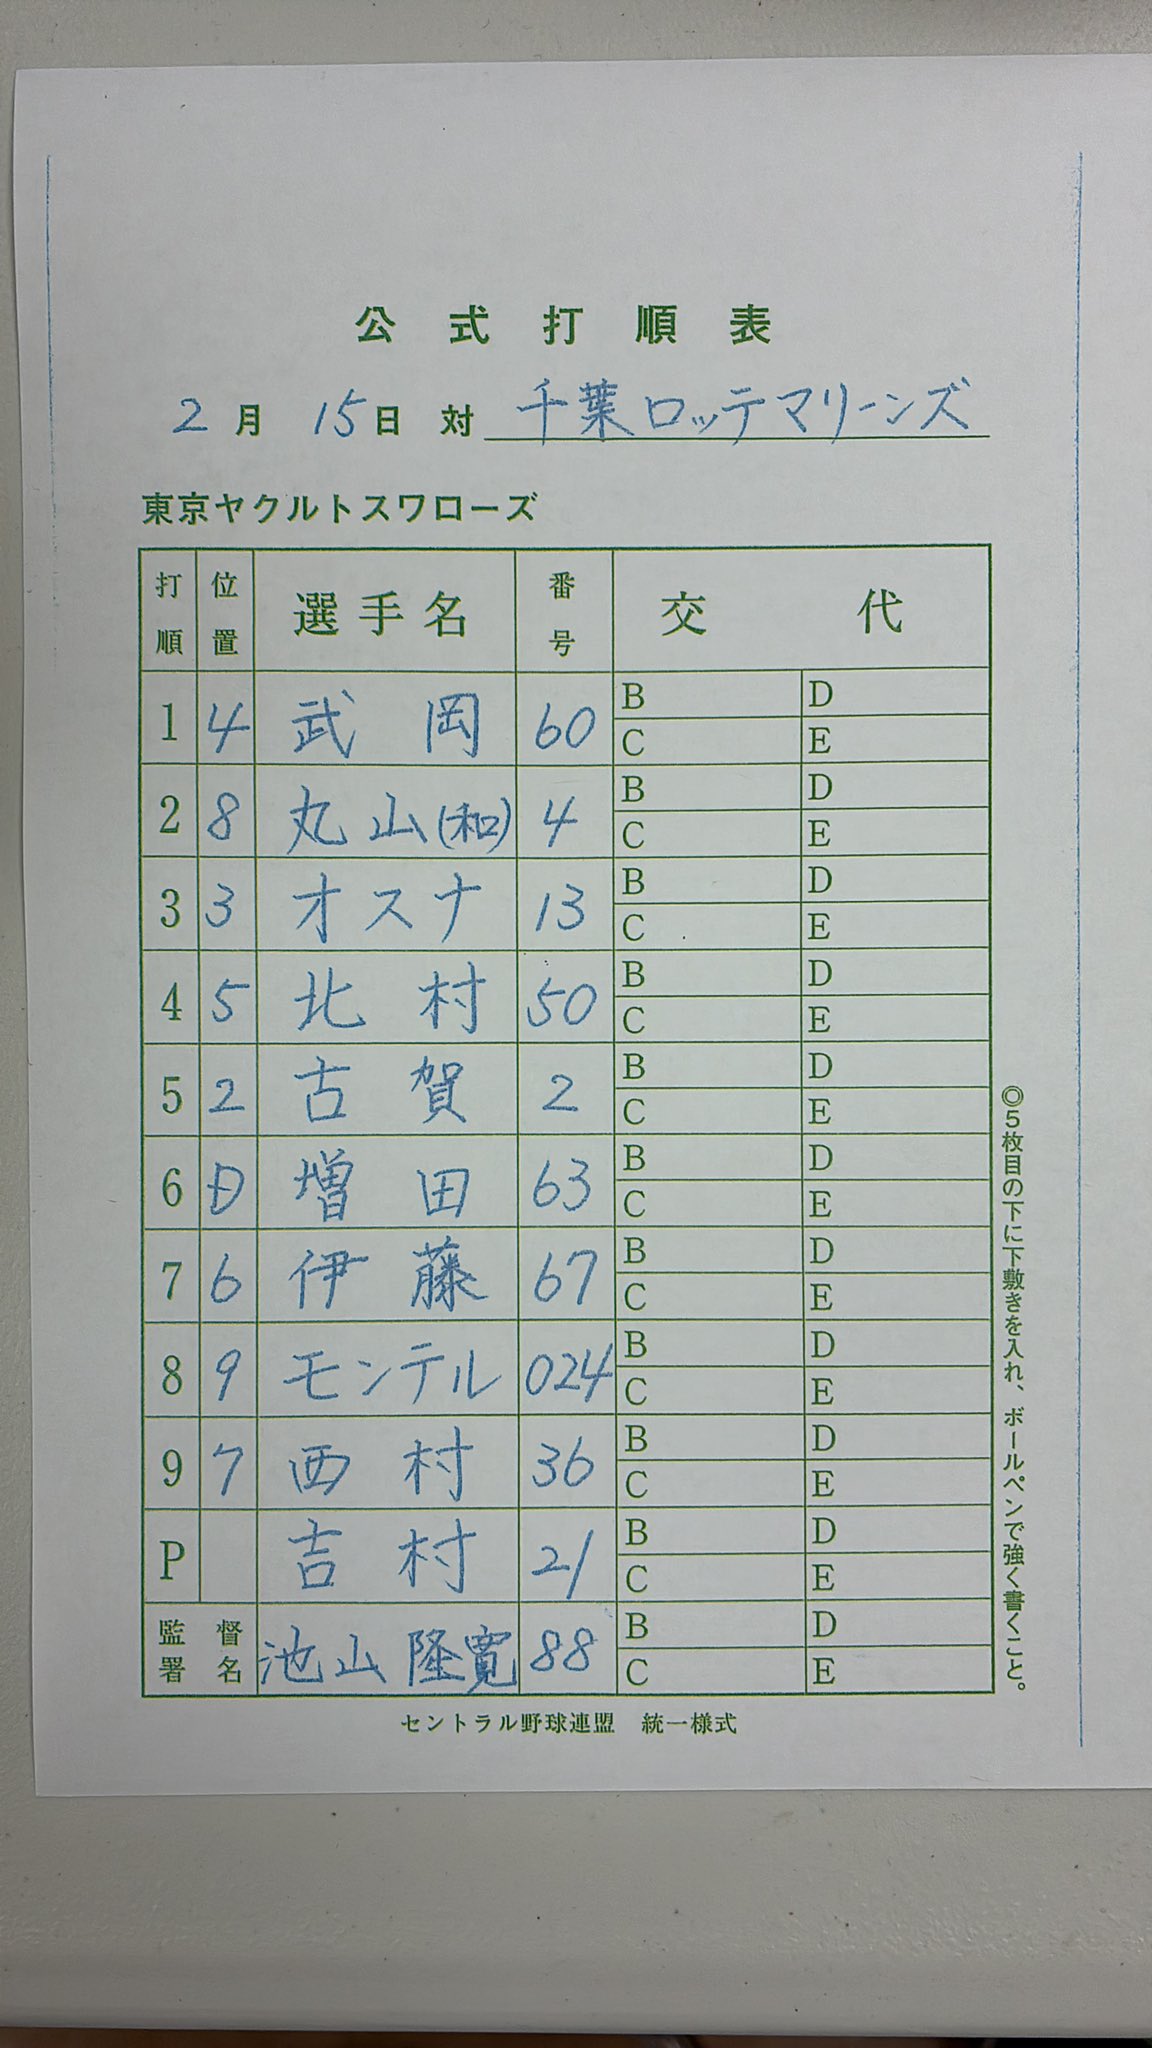 公式打順表
2月 15日 対 千葉ロッテマリーンズ
東京ヤクルトスワローズ
打順 位置 選手名 番号 交代
1 4 武岡 60 B D
C E
2 8 丸山(和) 4 B D
C E
3 3 オスナ 13 B D
C E
4 5 北村 50 B D
C E
5 2 古賀 2 B D
C E
6 D 増田 63 B D
C E
7 6 伊藤 67 B D
C E
8 9 モンテル 024 B D
C E
9 7 西村 36 B D
C E
P 吉村 21 B D
C E
監督署名 池山隆寛 88 B D
C E
セントラル野球連盟 統一様式
◎5枚目の下に下敷きを入れ、ボールペンで強く書くこと。